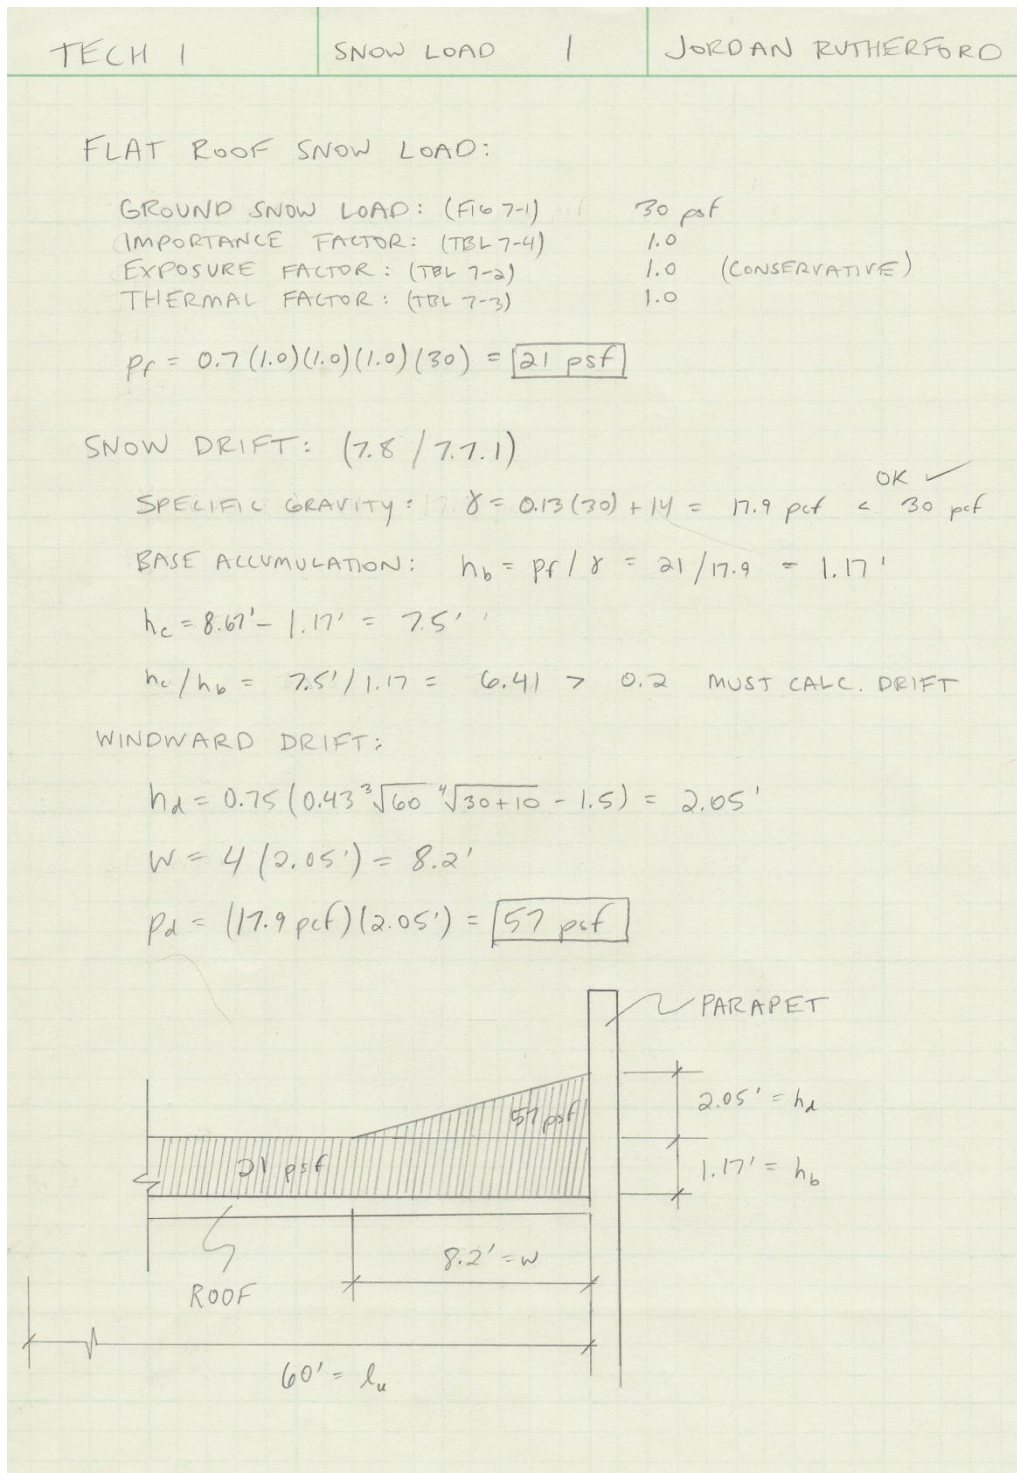 TECH 1 SNOW LOAD 1 JORDAN RUTHERFORD
FLAT ROOF SNOW LOAD:
GROUND SNOW LOAD: (FIG 7-1) 30 psf
IMPORTANCE FACTOR: (TBL 7-4) 1.0
EXPOSURE FACTOR: (TBL 7-2) 1.0 (CONSERVATIVE)
THERMAL FACTOR: (TBL 7-3) 1.0
pf = 0.7 (1.0)(1.0)(1.0)(30) = 21 psf
SNOW DRIFT: (7.8 / 7.7.1)
OK ✓
SPECIFIC GRAVITY: γ = 0.13(30) + 14 = 17.9 pcf < 30 pcf
BASE ACCUMULATION: hb = pf / γ = 21/17.9 = 1.17'
hc = 8.67' - 1.17' = 7.5'
hc/hb = 7.5'/1.17 = 6.41 > 0.2 MUST CALC. DRIFT
WINDWARD DRIFT:
hd = 0.75 (0.43 ³√60 ⁴√30+10 - 1.5) = 2.05'
W = 4 (2.05') = 8.2'
Pd = (17.9 pcf)(2.05') = 57 psf
PARAPET
2.05' = hd
57 psf
21 psf
1.17' = hb
8.2' = w
ROOF
60' = lu